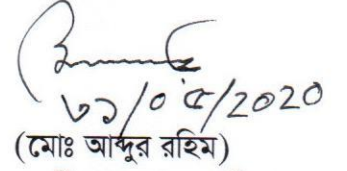 ৩১/০৫/2020
(মোঃ আব্দুর রহিম)